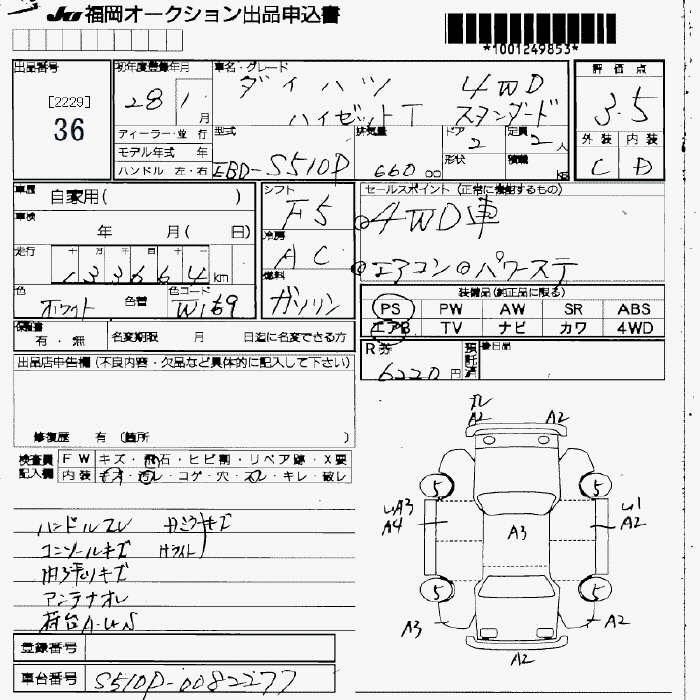 JU 福岡オークション出品申込書
*1001249853*
出品番号
[2229]
36
初年度登録年月
28 1月
ディーラー・並行
モデル年式 年
ハンドル 左・右
車名・グレード
ダイハツ 4WD
ハイゼットT スタンダード
型式
EBD-S510P
排気量
660 cc
ドア
2
形状
定員
2人
積載
kg
評価点
3.5
外装 内装
C D
車歴
自家用( )
車検
年 月( 日)
走行
十 万 千 百 十 一
133664km
色
ホワイト
色替
色コード
W169
シフト
F5
冷房
AC
燃料
ガソリン
セールスポイント (正常に機能するもの)
◎4WD車
◎エアコン◎パワーステ
装備品(純正品に限る)
PS PW AW SR ABS
エアB TV ナビ カワ 4WD
保証書
有・無
名変期限 月 日迄に名変できる方
R券
6220円
預託済
後日品
出品店申告欄(不良内容・欠品など具体的に記入して下さい)
修復歴 有 (箇所 )
検査員記入欄
FW キズ・飛石・ヒビ割・リペア跡・X要
内装 キズ・汚レ・コゲ・穴・スレ・キレ・破レ
ハンドルスレ
コンソールキズ Hライト
内張りキズ
アンテナオレ
荷台A・U・S
A2 A2
5 5
A3
A4
A3
U1
A2
5 5
A3 A2
A2
登録番号
車台番号
S510P-0082277